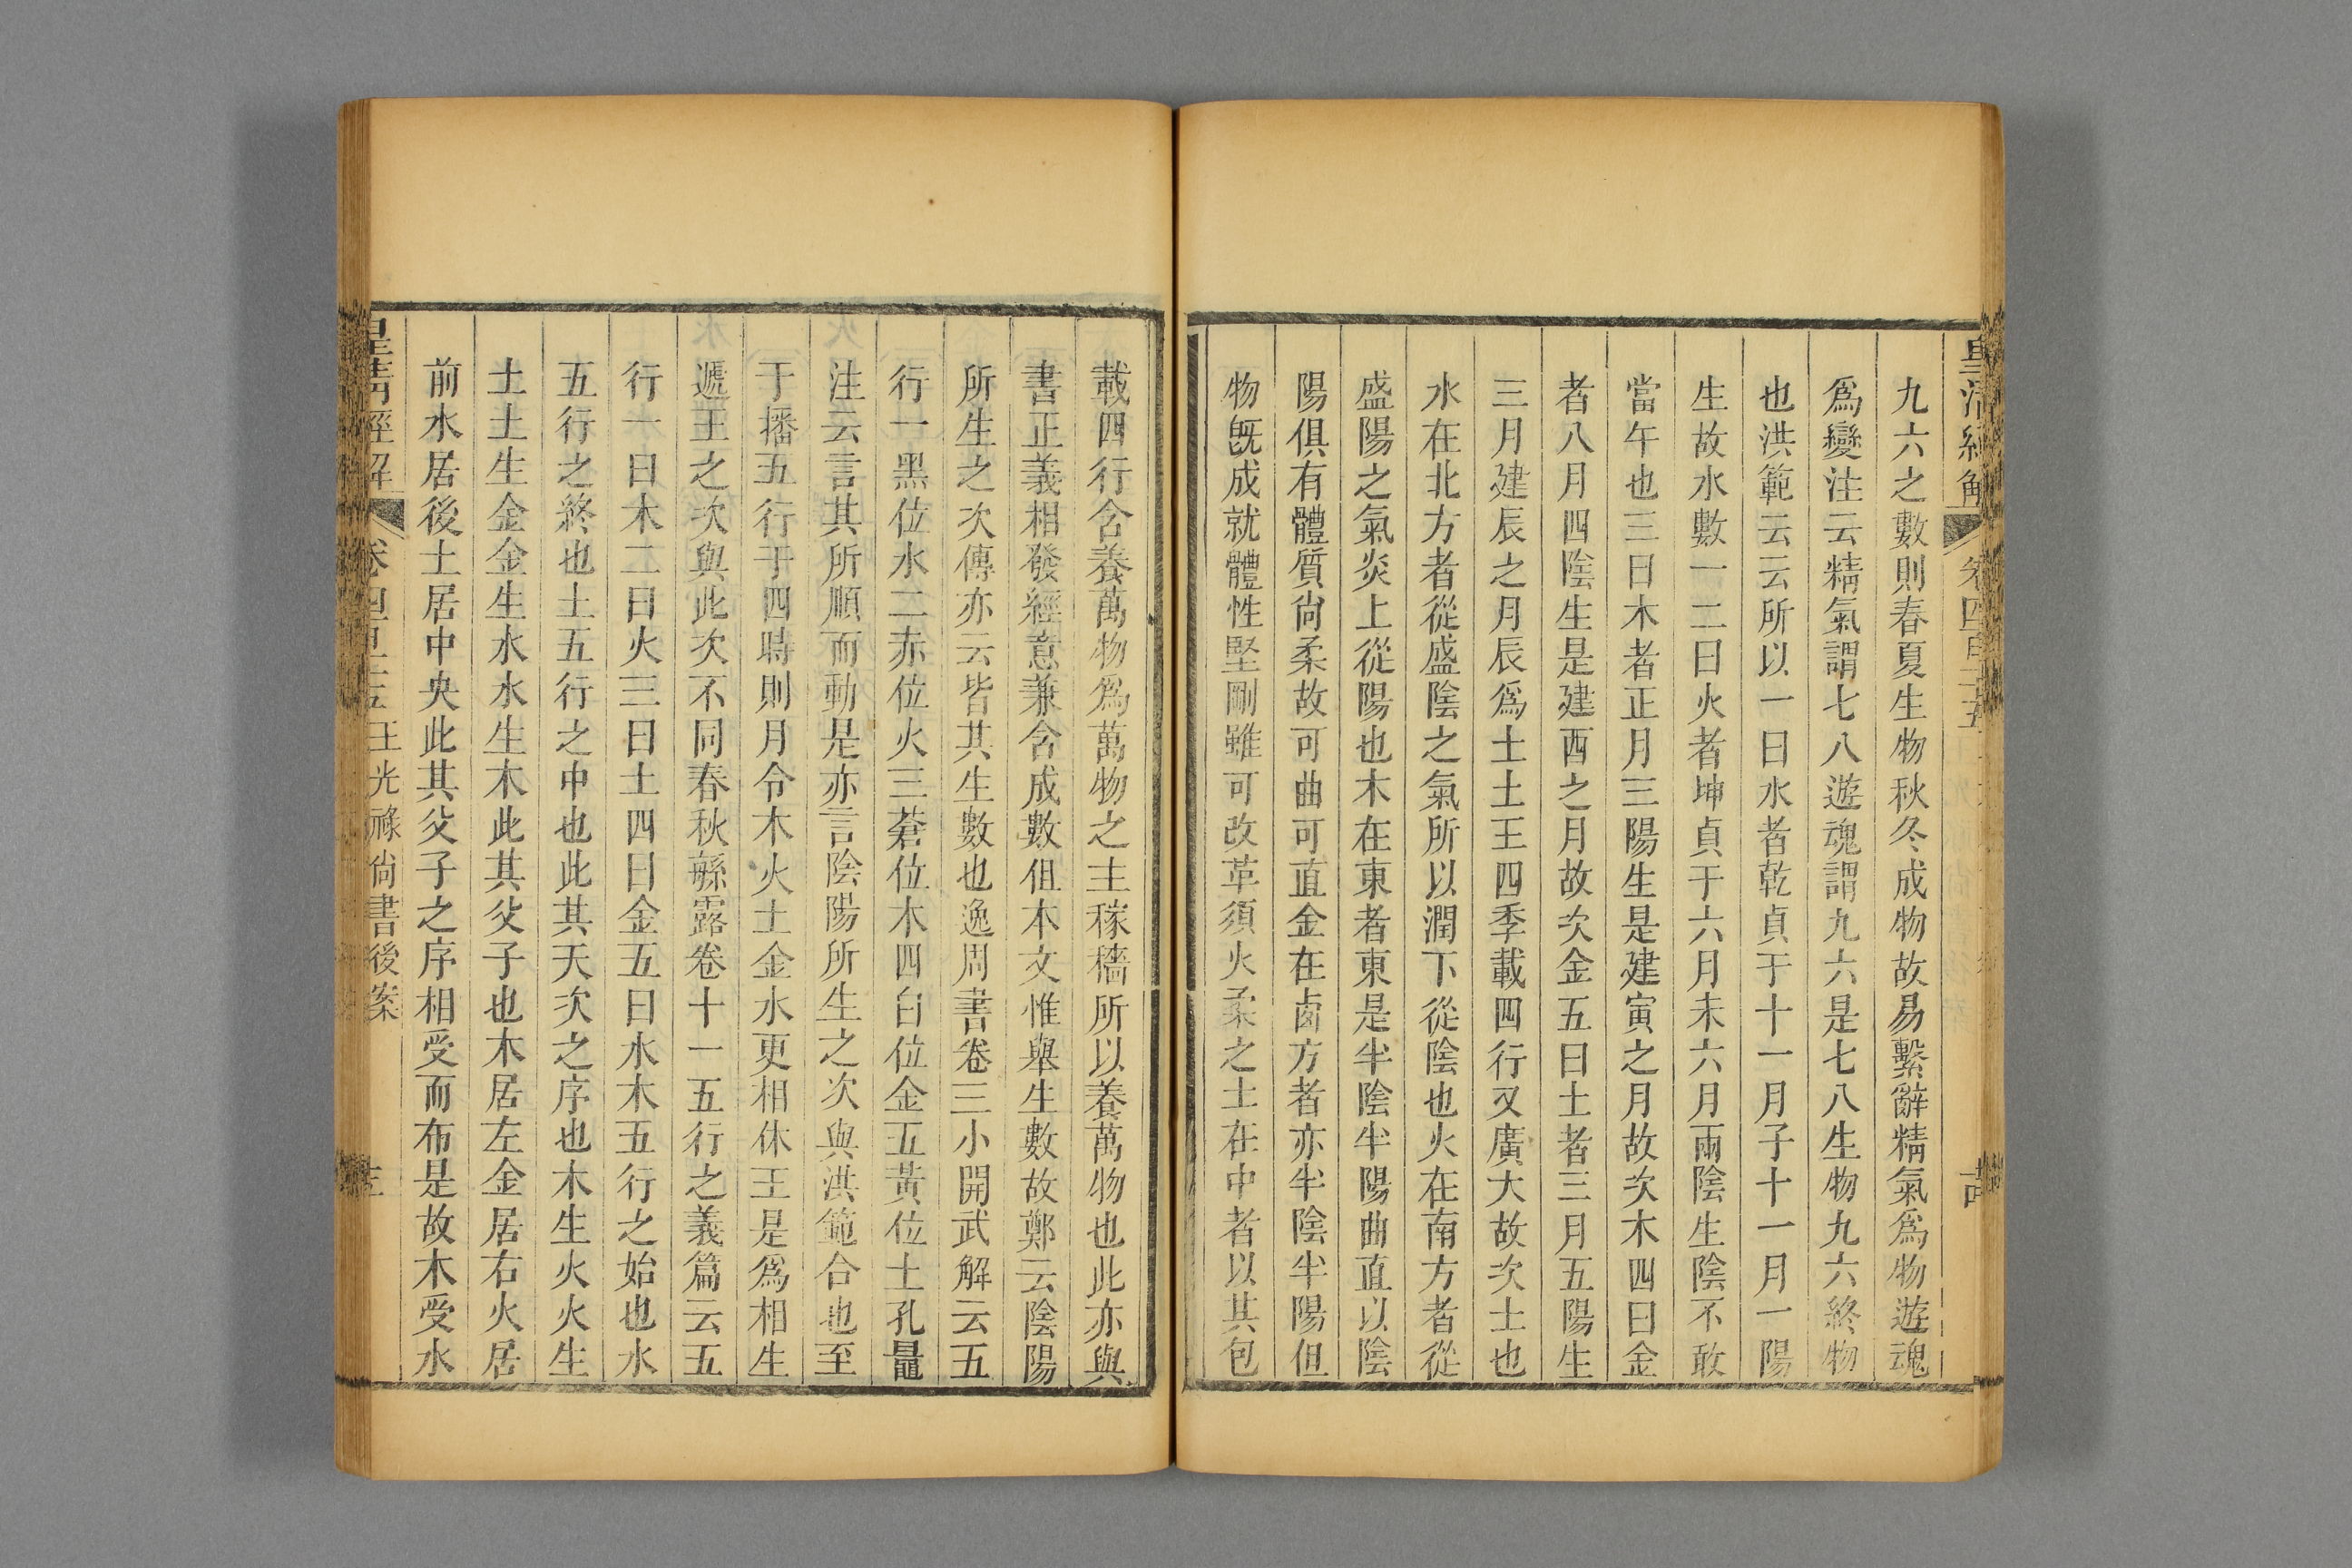 九六之數則春夏生物秋冬成物故易繫辭精氣爲物遊魂
爲變注云精氣謂七八遊魂謂九六是七八生物九六終物
也洪範云云所以一曰水者乾貞于十一月子十一月一陽
生故水數一二曰火者坤貞于六月未六月兩陰生陰不敢
當午也三曰木者正月三陽生是建寅之月故次木四曰金
者八月四陰生是建酉之月故次金五曰土者三月五陽生
三月建辰之月辰爲土土王四季載四行又廣大故次土也
水在北方者從盛陰之氣所以潤下從陰也火在南方者從
盛陽之氣炎上從陽也木在東者東是半陰半陽曲直以陰
陽俱有體質尙柔故可曲可直金在西方者亦半陰半陽但
物旣成就體性堅剛雖可改革須火柔之土在中者以其包
載四行含養萬物爲萬物之主稼穡所以養萬物也此亦與
書正義相發經意兼含成數但本文惟舉生數故鄭云陰陽
所生之次傳亦云皆其生數也逸周書卷三小開武解云五
行一黑位水二赤位火三蒼位木四白位金五黃位土孔鼂
注云言其所順而動是亦言陰陽所生之次與洪範合也至
于播五行于四時則月令木火土金水更相休王是爲相生
遞王之次與此次不同春秋繇露卷十一五行之義篇云五
行一曰木二曰火三曰土四曰金五曰水木五行之始也水
五行之終也土五行之中也此其天次之序也木生火火生
土土生金金生水水生木此其父子也木居左金居右火居
前水居後土居中央此其父子之序相受而布是故木受水
皇淸經解 卷四百十五 王光祿尙書後案